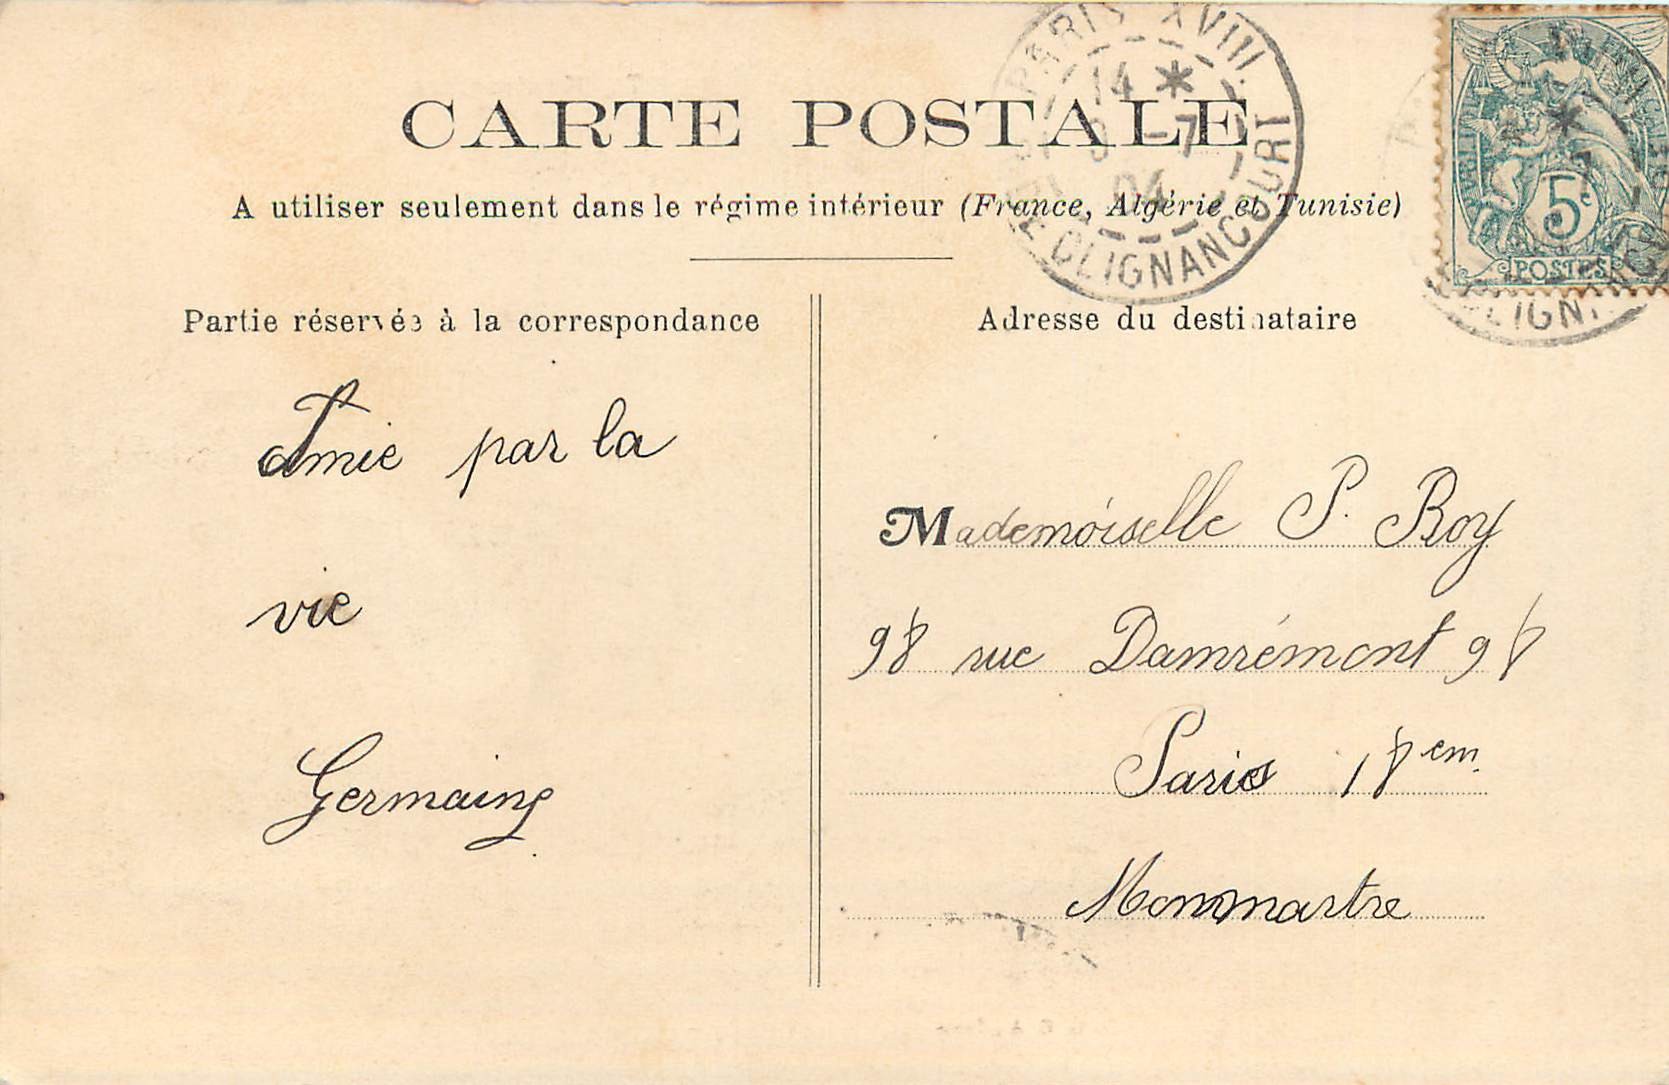 CARTE POSTALE
A utiliser seulement dans le régime intérieur (France, Algérie et Tunisie)
PARIS XVIII.
14 *
9 -7
04
CLIGNANCOURT
5c
POSTES
Partie réservée à la correspondance
Amie par la
vie
Germaine
Adresse du destinataire
Mademoiselle P. Roy
98 rue Damrémont 98
Paris 18em
Monmartre